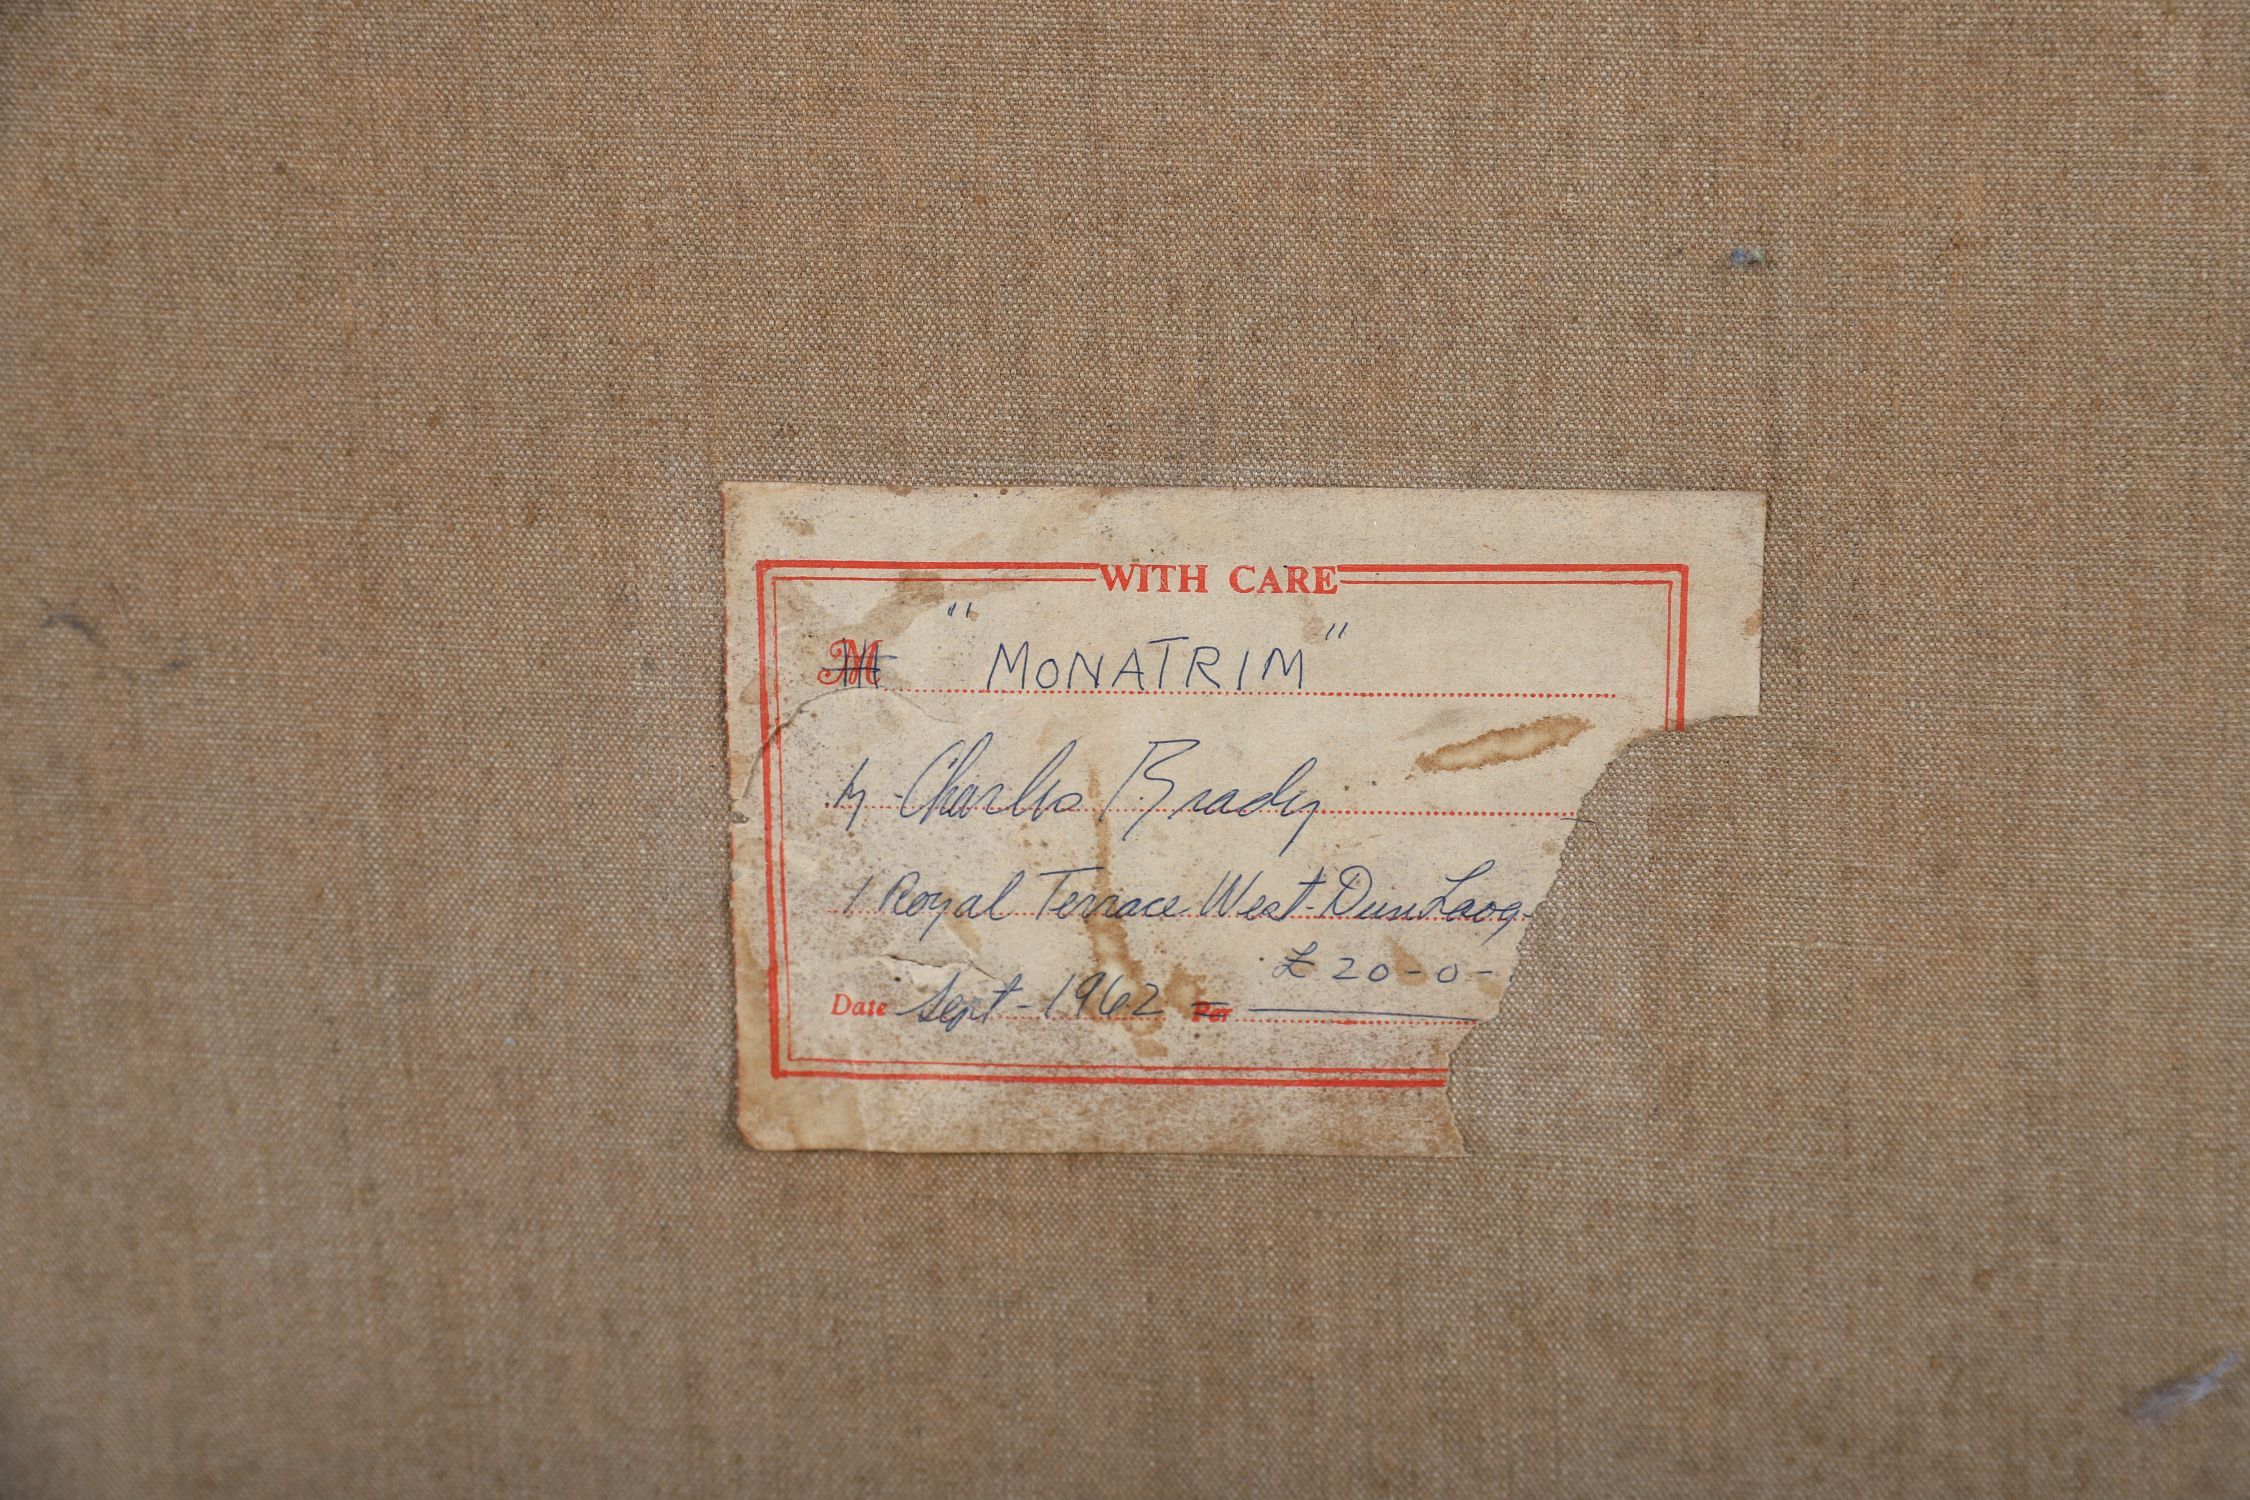 WITH CARE
M "MONATRIM"
by Charles Brady
1 Royal Terrace West - Dun Laog-
£ 20-0-
Date Sept - 1962 Per